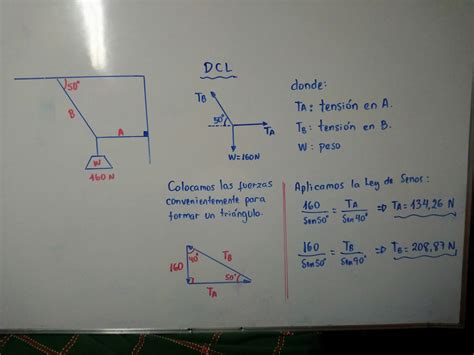 50°
B
A
W
160 N
DCL
T_B
50°
T_A
W=160N
donde:
T_A: tensión en A.
T_B: tensión en B.
W: peso
Colocamos las fuerzas
convenientemente para
formar un triángulo.
40°
T_B
160
50°
T_A
Aplicamos la Ley de Senos:
160/Sen50° = T_A/Sen40° ⇒ T_A = 134,26 N
160/Sen50° = T_B/Sen90° ⇒ T_B = 208,87 N